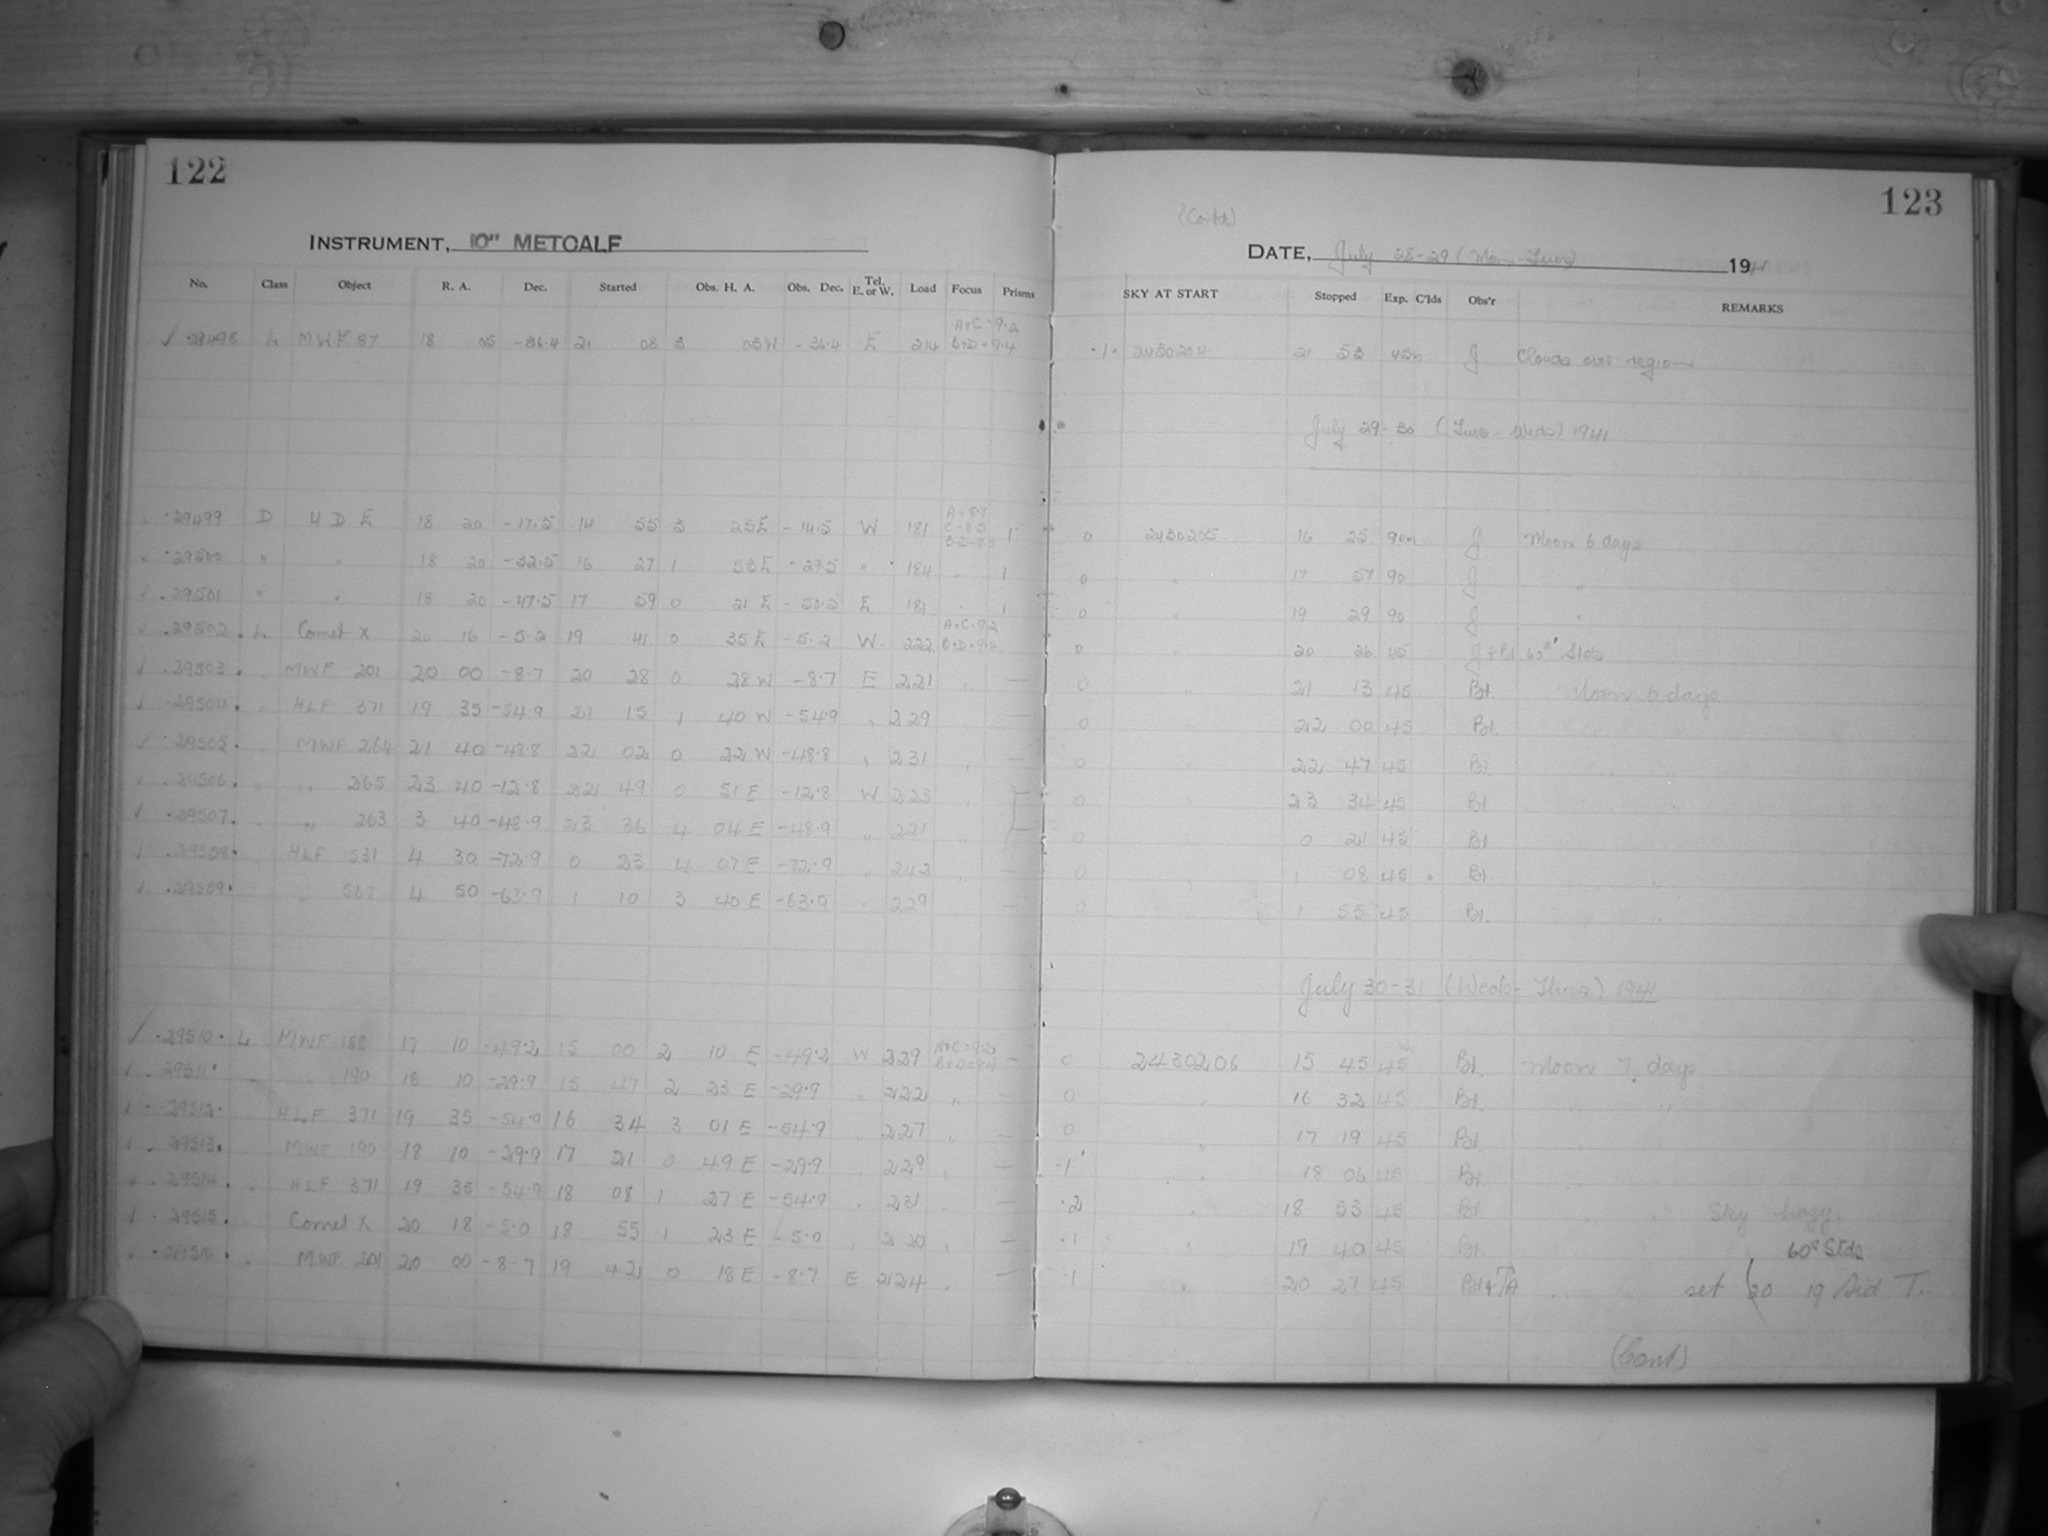 122
INSTRUMENT, 10" METCALF
No. Class Object R. A. Dec. Started Obs. H. A. Obs. Dec. Tel. E. or W. Load Focus Prisms
29498 L MWF 87 18 05 -36.4 21 08 3 03W -36.4 E 214 A+C=9.2 B+D=9.4
29499 D 4 D E 18 20 -17.5 14 55 3 25E -14.5 W 181 1
29500 " " 18 20 -32.5 16 27 1 53E -29.5 " 184 " 1
29501 " " 18 20 -47.5 17 59 0 21 E -50.5 E 181 " 1
29502 L Comet X 20 16 -5.2 19 41 0 35E -5.2 W. 222 A+C=9.2
29503 MWF 201 20 00 -8.7 20 28 0 28 W -8.7 E 221 " —
29504 HLF 371 19 35 -54.9 21 15 1 40 W -54.9 " 229 —
29505 MWF 264 21 40 -48.8 22 02 0 22 W -48.8 " 231 " —
29506 " 265 23 40 -12.8 22 49 0 51 E -12.8 W 223 " —
29507 " 263 3 40 -48.9 23 36 4 04 E -48.9 " 221 " —
29508 HLF 531 4 30 -72.9 0 23 4 07 E -72.9 " 242 "
29509 " 567 4 50 -63.9 1 10 3 40 E -63.9 " 229 " —
29510 L MWF 188 17 10 -49.2 15 00 2 10 E -49.2 W 229 A+C=9.2 B+D=9.4 —
29511 " 190 18 10 -29.9 15 47 2 23 E -29.9 " 222 " —
29512 HLF 371 19 35 -54.9 16 34 3 01 E -54.9 " 227 " —
29513 MWF 190 18 10 -29.9 17 21 0 49 E -29.9 " 229 " —
29514 HLF 371 19 35 -54.9 18 08 1 27 E -54.9 " 231 " —
29515 Comet X 20 18 -5.0 18 55 1 23 E -5.0 " 220 " —
29516 MWF 201 20 00 -8.7 19 42 0 18 E -8.7 E 224 " —
123
(Contd)
DATE, July 28-29 (Mon-Tues) 1941
SKY AT START Stopped Exp. C'lds Obs'r REMARKS
.1 2430204 21 53 45m J Clouds over region
July 29-30 (Tues-Weds) 1941
0 2430205 16 25 90m J Moon 6 days
0 " 17 57 90 J "
0 " 19 29 90 J "
0 " 20 26 45 J+Bl 60s Stds
0 " 21 13 45 Bl. Moon 6 days
0 22 00 45 Bl.
0 " 22 47 45 Bl. " "
0 " 23 34 45 Bl. "
0 " 0 21 45 Bl
0 " 1 08 45 Bl. " "
0 " 1 55 45 Bl. " "
July 30-31 (Weds-Thurs) 1941
0 2430206 15 45 45 Bl. Moon 7 days
0 " 16 32 45 Bl. " "
0 " 17 19 45 Bl.
.1 " 18 06 45 Bl.
.2 " 18 53 45 Bl. " " Sky hazy.
.1 " 19 40 45 Bl. 60s Stds
.1 " 20 27 45 Bl+TA " set (20 19 Sid T.
(Cont)